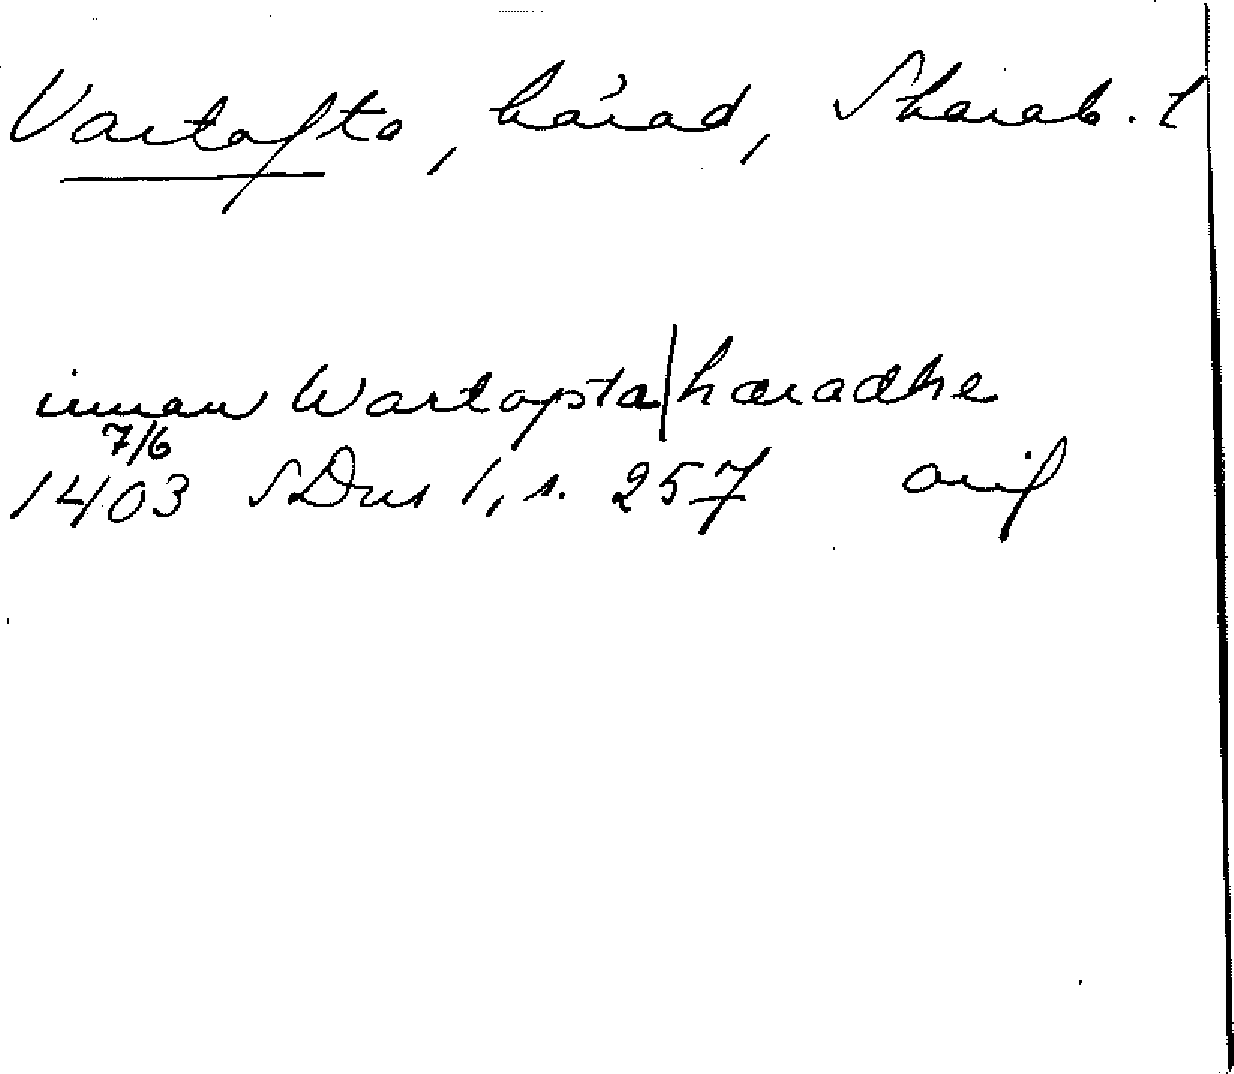 Vartofta, härad, Skarab. l
innan Wartopta|häradhe
7/6
1403 SDns 1, s. 257 orig